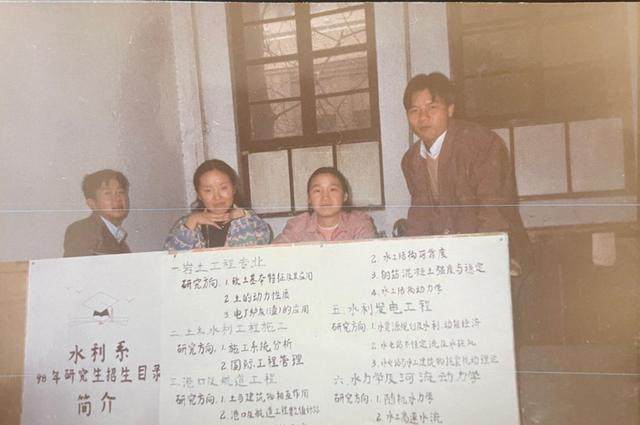 水利系
98年研究生招生目录
简介
一.岩土工程专业
研究方向:1.软土基本特征及其应用
2.土的动力性质
3.电厂粉灰(渣)的应用
二.土木水利工程施工
研究方向:1.施工系统分析
2.国际工程管理
三.港口及航道工程
研究方向:1.土与建筑物相互作用
2.港口及航道工程
2.水工结构可靠度
3.钢筋混凝土强度与稳定
4.水工结构动力学
五.水利发电工程
研究方向:1.水资源规划及水利、动能经济
2.水电站不恒定流及水锤
3.水电站与水工建筑物
六.水力学及河流动力学
研究方向:1.随机水力学
2.水工高速水流